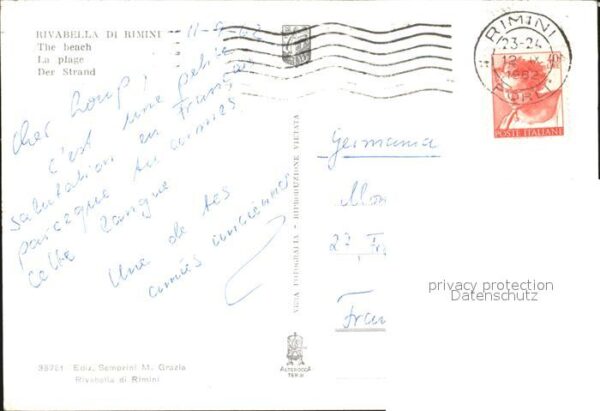 RIVABELLA DI RIMINI
The beach
La plage
Der Strand
11-9-62
Cher Loup,
c'est une petite
salutation en Français
parceque tu aimes
cette langue
Une de tes
amies
VERA FOTOGRAFIA - RIPRODUZIONE VIETATA
RIMINI
23-24
12. 1962
FORLI
40
POSTE ITALIANE
Germania
22
privacy protection
Datenschutz
ALTEROCCA
TERNI
Ediz. Semprini M. Grazia
Rivabella di Rimini